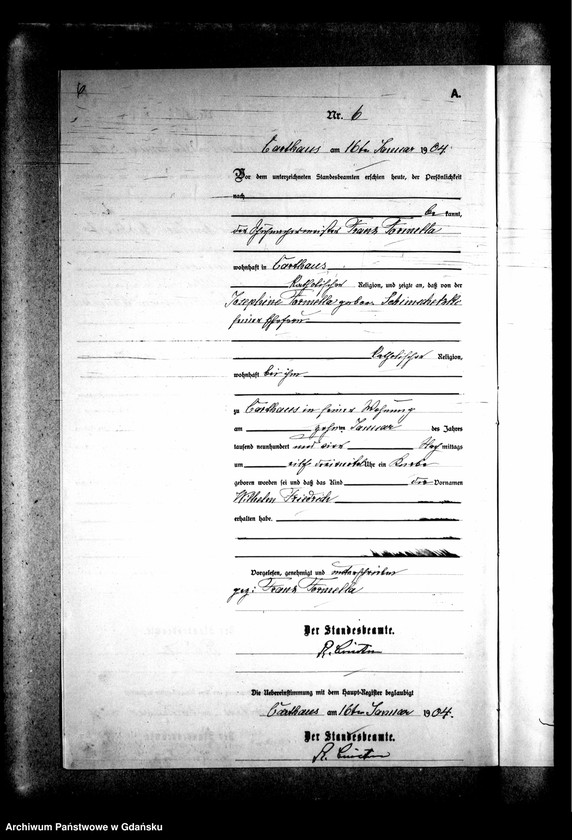 6
A.
Nr. 6
Carthaus am 16ten Januar 1904.
Vor dem unterzeichneten Standesbeamten erschien heute, der Persönlichkeit
nach
be kannt,
der Schuhmachermeister Franz Formella
wohnhaft in Carthaus
katholischer Religion, und zeigte an, daß von der
Josephine Formella geboren
seiner Ehefrau
katholischer Religion,
wohnhaft bei ihm
zu Carthaus in seiner Wohnung
am Januar des Jahres
tausend neunhundert und vier mittags
um Uhr ein Knabe
geboren worden sei und daß das Kind die Vornamen
Wilhelm Friedrich
erhalten habe.
Vorgelesen, genehmigt und unterschrieben
gez: Franz Formella
Der Standesbeamte.
Die Uebereinstimmung mit dem Haupt-Register beglaubigt
Carthaus am 16ten Januar 1904.
Der Standesbeamte.
Archiwum Państwowe w Gdańsku